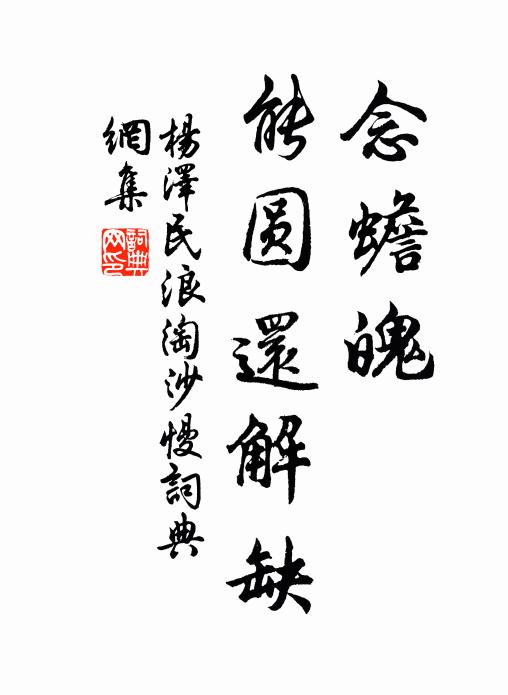 念蟾魄
能圆還解缺
楊澤民浪淘沙慢詞典
網集
詞典
网印